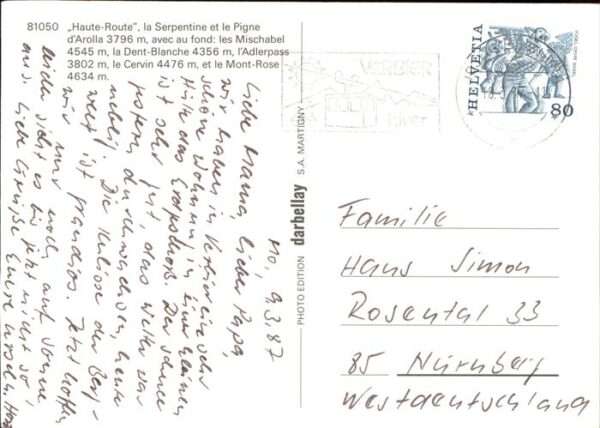 81050 „Haute-Route", la Serpentine et le Pigne
d'Arolla 3796 m, avec au fond: les Mischabel
4545 m, la Dent-Blanche 4356 m, l'Adlerpass
3802 m, le Cervin 4476 m, et le Mont-Rose
4634 m.
VERBIER
HELVETIA
80
PHOTO EDITION darbellay S.A. MARTIGNY
Mo, 9.3.87
Liebe Mama, lieber Papa,
wir haben in Verbier eine sehr
schöne Wohnung in einer kleinen
Hütte das Erdgeschoß. Der Schnee
ist sehr gut, das Wetter war
gestern durchwachsen, heute
neblig. Die Kulisse der Berg-
welt ist grandios. Jetzt hoffen
wir nur noch auf Sonne
leider sieht es bis jetzt nicht so
aus. Liebe Grüße Eure
Familie
Hans Simon
Rosental 33
85 Nürnberg
Westdeutschland